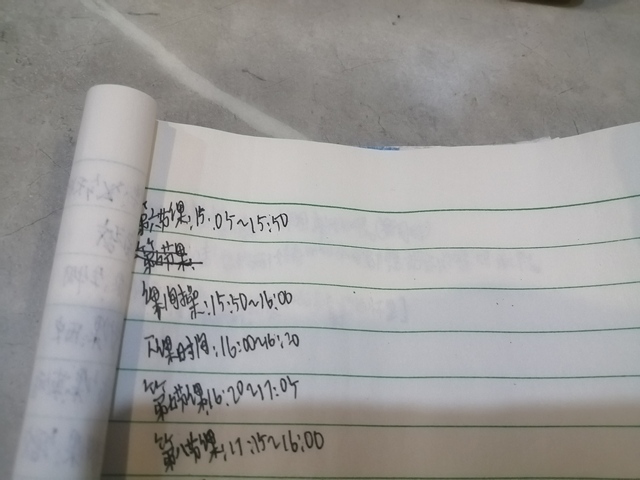 第六节课:15:05~15:50
第七节课
课间操:15:50~16:00
下课时间:16:00~16:20
第七节课16:20~17:05
第八节课:17:15~16:00